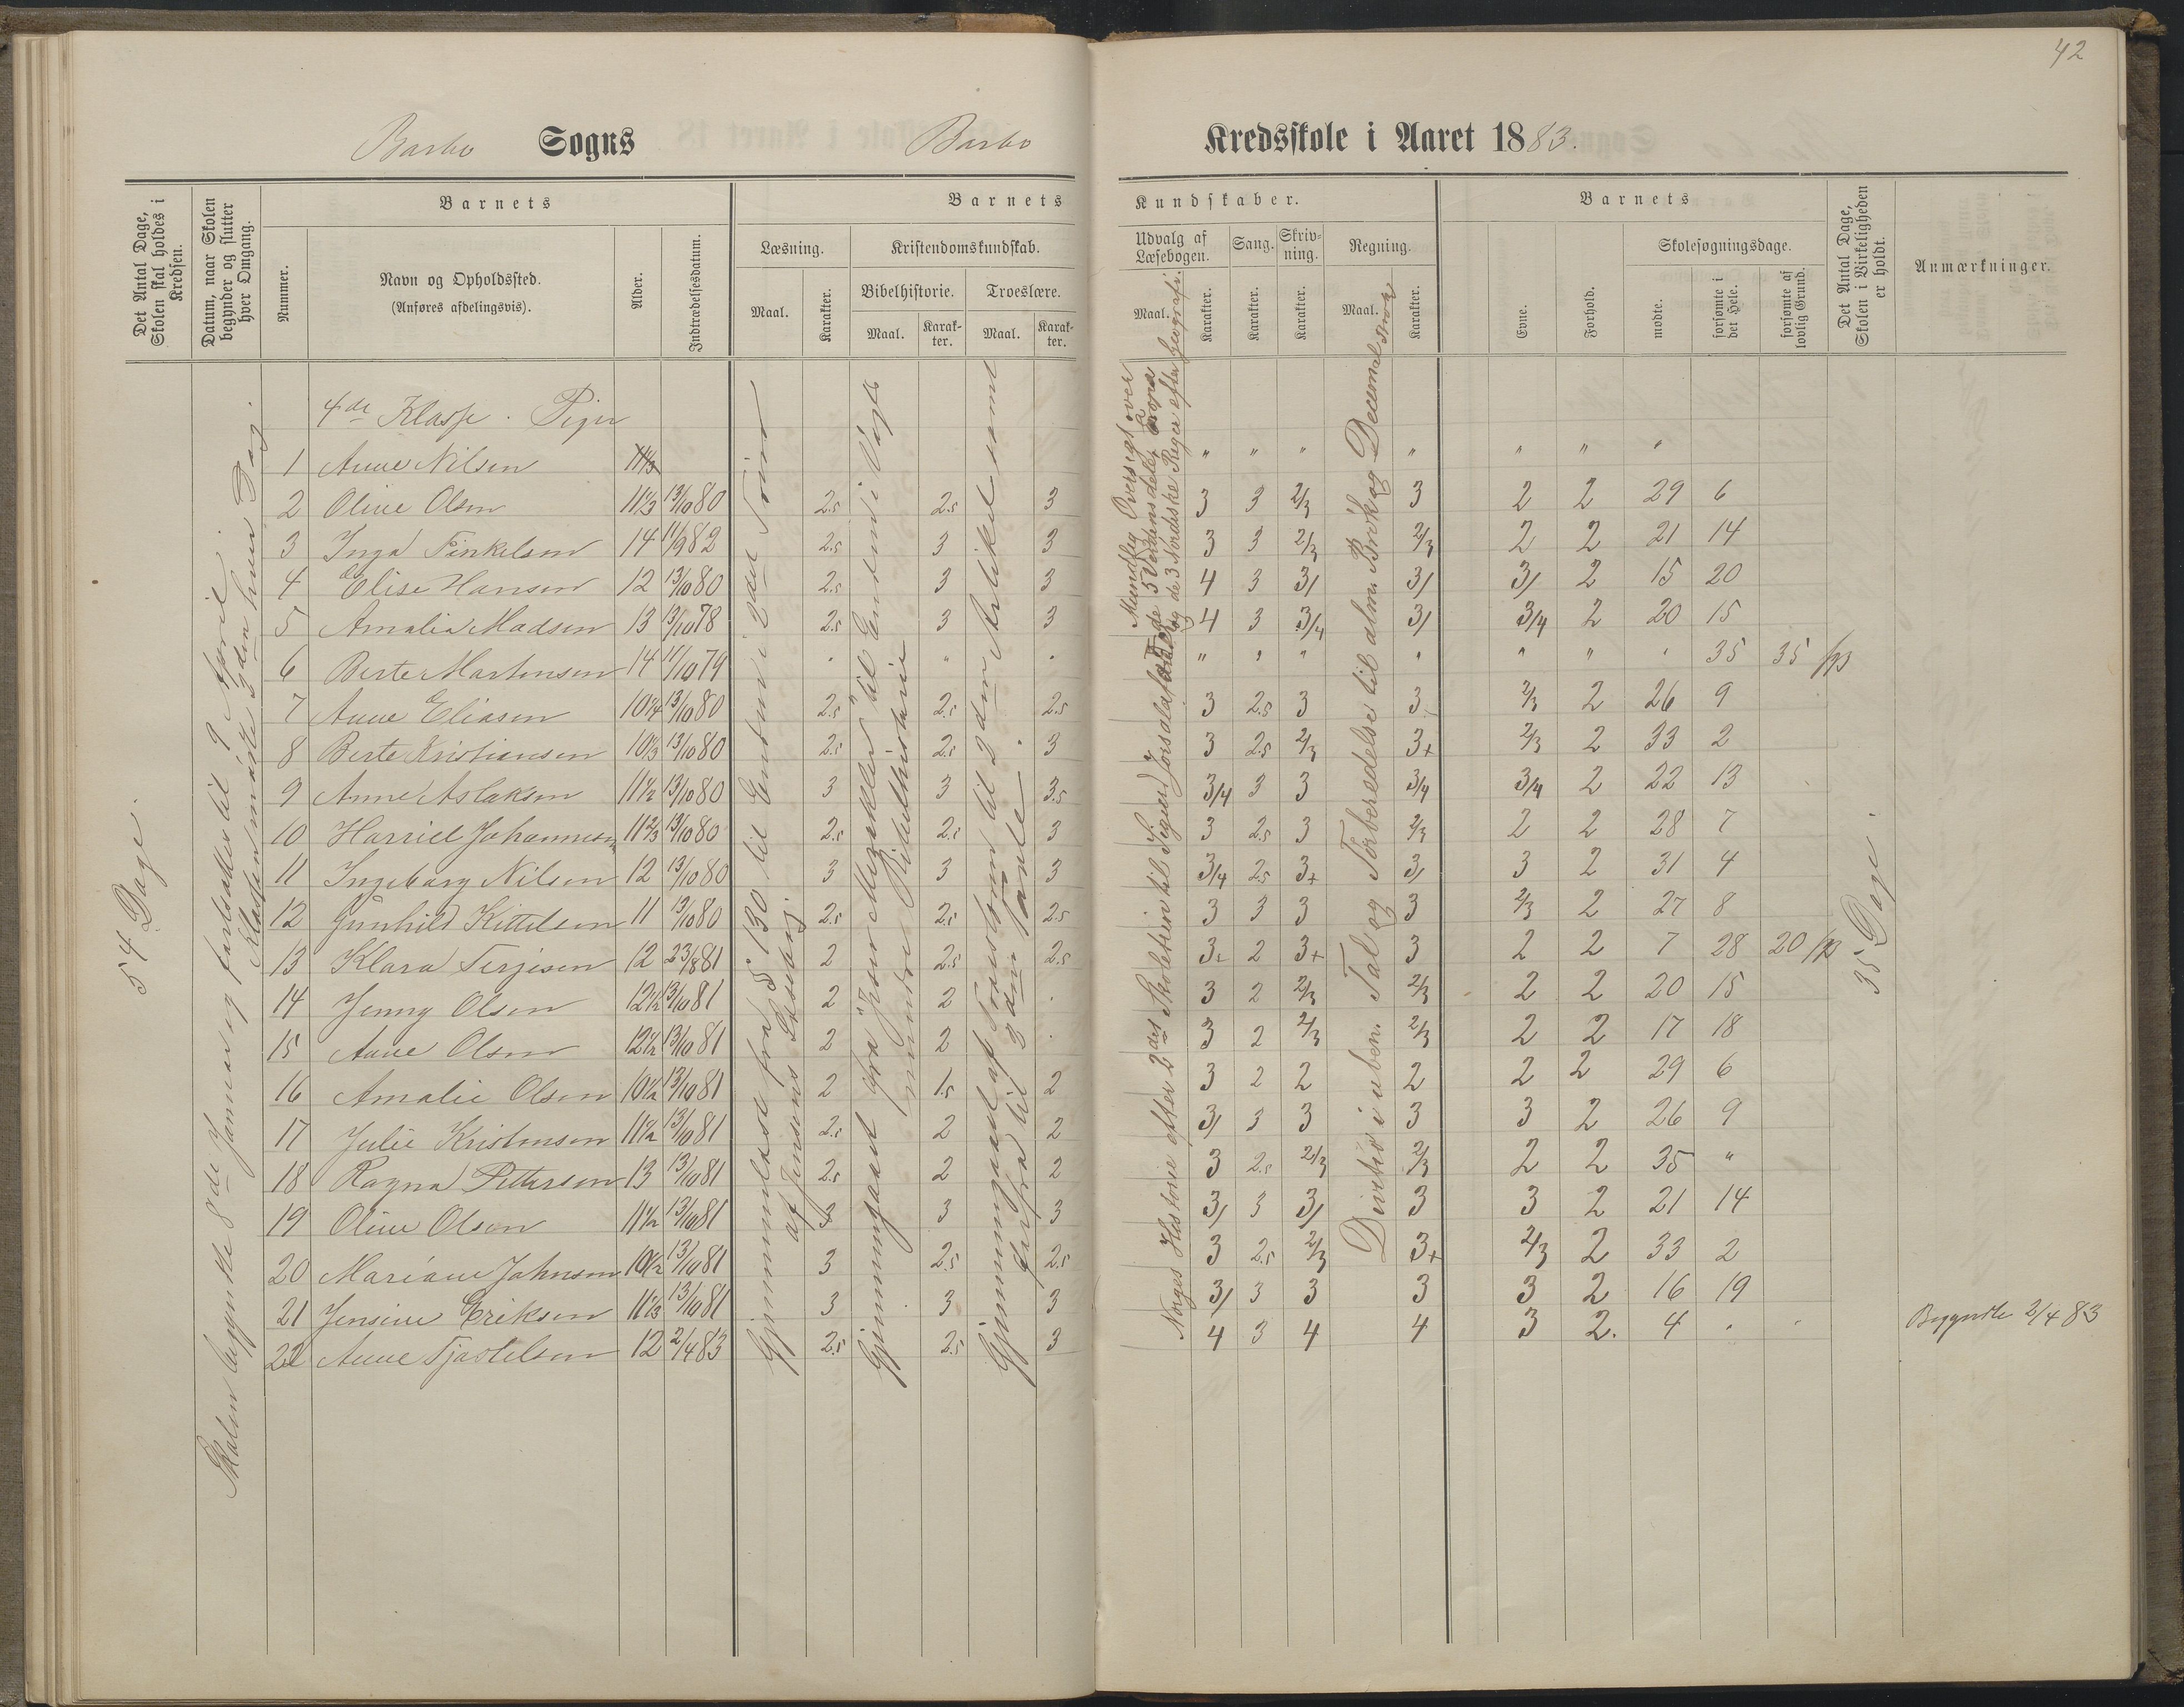 42
Barbo Sogns Barbo Kredsskole i Aaret 1883.
Det Antal Dage, Skolen skal holdes i Kredsen.
Datum, naar Skolen begynder og slutter hver Omgang.
Barnets
Nummer.
Navn og Opholdssted.
(Anføres afdelingsvis).
Alder.
Indtrædelsesdatum.
Barnets Kundskaber.
Læsning.
Maal.
Karakter.
Kristendomskundskab.
Bibelhistorie.
Maal.
Karakter.
Troeslære.
Maal.
Karakter.
Udvalg af Læsebogen.
Maal.
Karakter.
Sang.
Karakter.
Skrivning.
Karakter.
Regning.
Maal.
Karakter.
Barnets
Evne.
Forhold.
Skolesøgningsdage.
mødte.
forsømte i det Hele.
forsømte af lovlig Grund.
Det Antal Dage, Skolen i Virkeligheden er holdt.
Anmærkninger.
54 Dage.
Skolen begyndte 8de Januar og fortsattes til 9 April.
Klassen mødte 3den hver Dag.
Gjennemlæst fra § 130 til Enden i 2det Trin
af Jensens Læsebog.
Gjennemgaaet fra "Jesu Mirakler" til Enden i Vogts
mindre Bibelhistorie
Gjennemgaaet af Troeslæren til 2den Artikel samt
Norges Historie efter 2det Skoletrin til Sigurd Jorsalafarer
Mundtlig Oversigt over
de 5 Verdensdele, Europa
og de 3 Nordiske Riger efter Geografi.
Division i uben. Tal og Forberedelse til alm. Brøk og Decimalbrøk
35 Dage.
4de Klasse. Piger
1 Anne Nilsen 11 1/3 " " " " " " "
2 Oline Olsen 11 1/3 13/10 80 2.5 2.5 3 3 3 2/3 3 2 2 29 6
3 Inga Terkelsen 14 11/9 82 2.5 3 3 3 3 2/3 2/3 2 2 21 14
4 Elise Hansen 12 13/10 80 2.5 3 3 4 3 3/ 3/ 3/ 2 15 20
5 Amalia Madsen 13 13/10 78 2.5 3 3 4 3 3/4 3/ 3/4 2 20 15
6 Berte Mortensen 14 11/10 79 " " " " " " " " " " 35 35
7 Anne Eliasen 10 1/4 13/10 80 2.5 2.5 2.5 3 2.5 3 3 2/3 2 26 9
8 Berte Kristiansen 10 1/3 13/10 80 2.5 2.5 3 3 2.5 2/3 3+ 2/3 2 33 2
9 Anne Aslaksen 11 1/2 13/10 80 3 3 3.5 3/4 3 3 3/4 3/4 2 22 13
10 Harriet Johannesen 11 2/3 13/10 80 2.5 2.5 3 3 2.5 3 2/3 2 2 28 7
11 Ingeborg Nilsen 12 13/10 80 3 3 3 3/4 2.5 3+ 3/ 3 2 31 4
12 Gunhild Kittelsen 11 13/10 80 2.5 2.5 2.5 3 3 3 3 2/3 2 27 8
13 Klara Terjesen 12 23/8 81 2 2.5 2.5 3+ 2 3+ 3 2 2 7 28 20
14 Jenny Olsen 12 1/2 13/10 81 2 2 . 3 2 2/3 2/3 2 2 20 15
15 Anne Olsen 12 1/2 13/10 81 2 2 . 3 2 2/3 2/3 2 2 17 18
16 Amalie Olsen 10 1/2 13/10 81 2 1.5 2 3 2 2 2 2 2 29 6
17 Julie Kristensen 11 1/2 13/10 81 2.5 2 2 3/ 3 3 3 3 2 26 9
18 Ragna Pettersen 13 13/10 81 2.5 2 2 3 2.5 2/3 2/3 2 2 35 "
19 Oline Olsen 11 1/2 13/10 81 3 3 3 3/ 3 3/ 3 3 2 21 14
20 Mariane Johnsen 10 1/2 13/10 81 3 2.5 2.5 3 2.5 2/3 3+ 2/3 2 33 2
21 Jensine Eriksen 11 1/3 13/10 81 3 3 3 3/ 3 3 3 3 2 16 19
22 Anne Tjøstelsen 12 2/4 83 2.5 2.5 3 4 3 4 4 3 2. 4 . . Begyndte 2/4 83